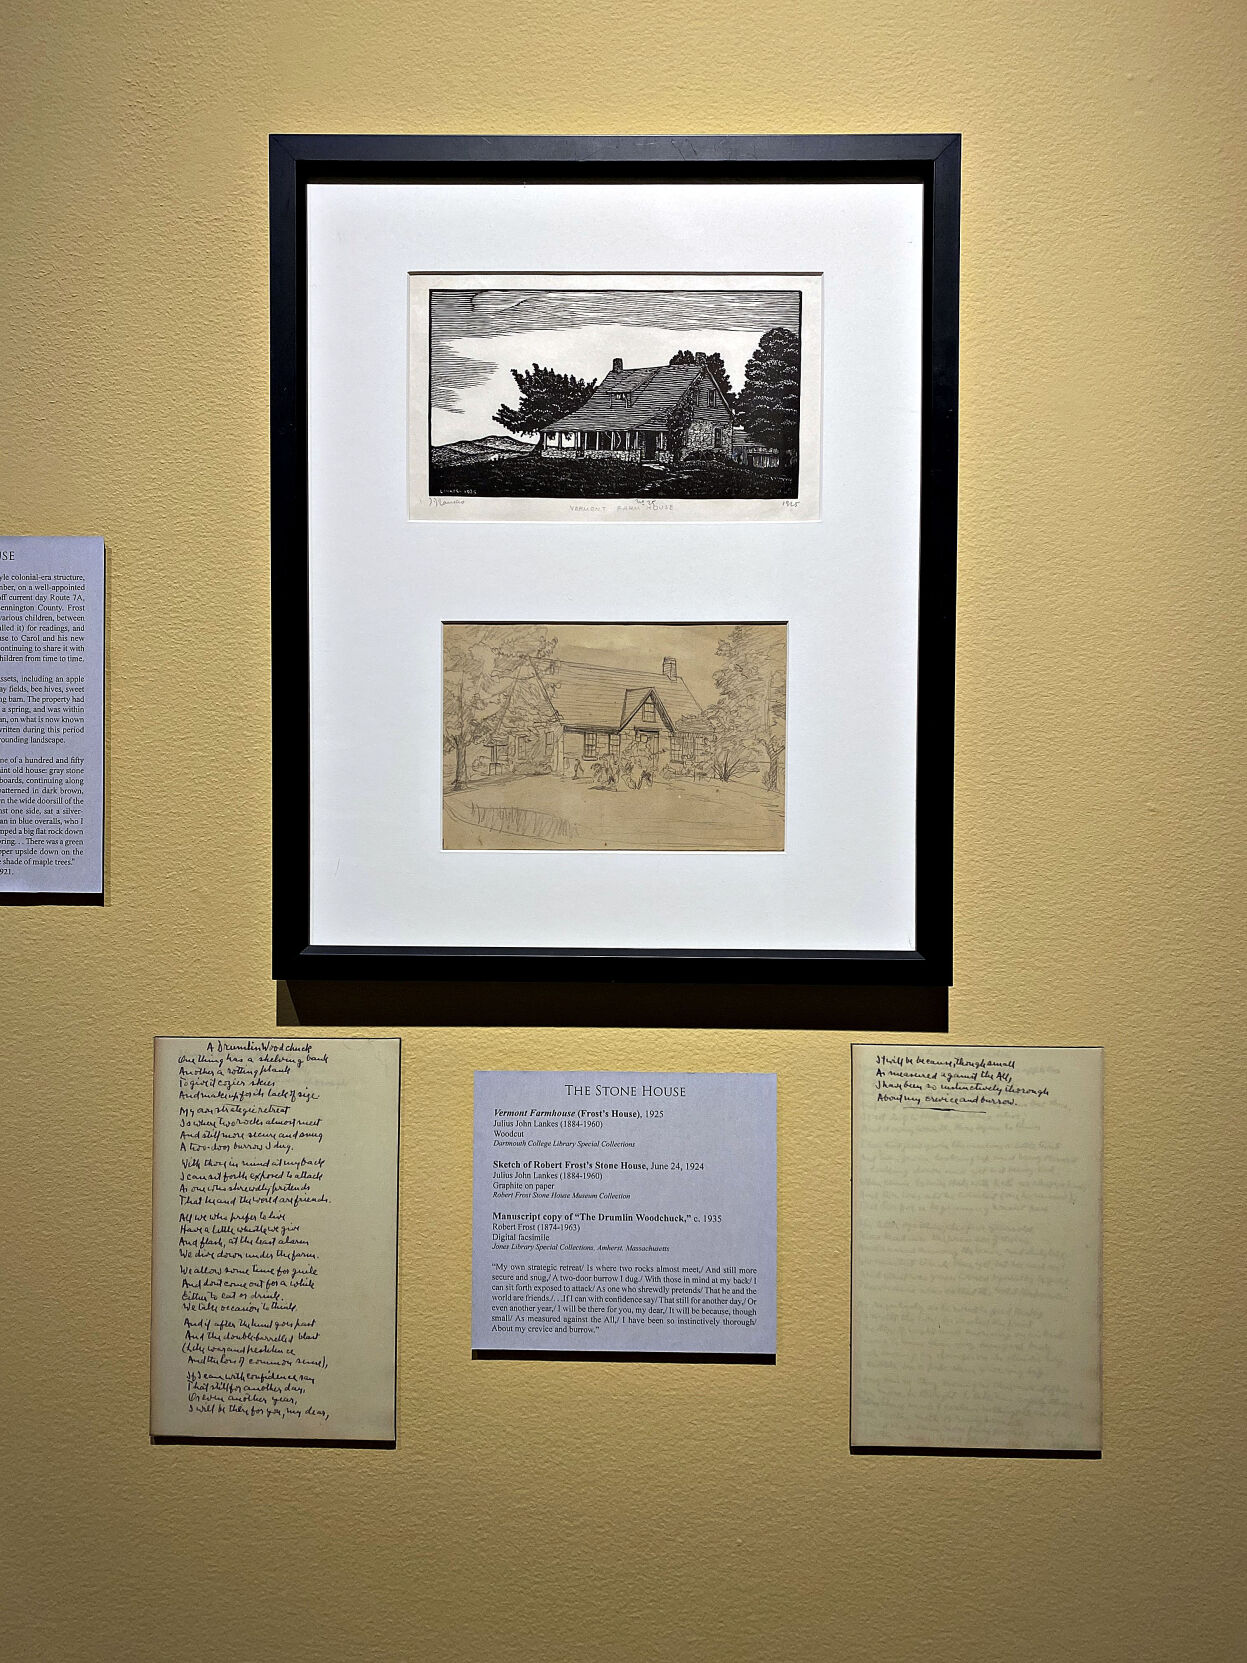 USE
yle colonial-era structure,
mber, on a well-appointed
off current day Route 7A,
ennington County. Frost
various children, between
alled it) for readings, and
use to Carol and his new
ontinuing to share it with
children from time to time.
ssets, including an apple
ay fields, bee hives, sweet
ng barn. The property had
a spring, and was within
an, on what is now known
written during this period
rounding landscape.
ne of a hundred and fifty
aint old house: gray stone
boards, continuing along
patterned in dark brown.
n the wide doorsill of the
nst one side, sat a silver-
an in blue overalls, who I
mped a big flat rock down
pring. . . There was a green
pper upside down on the
e shade of maple trees."
921.
VERMONT FARM HOUSE
1925
A Drumlin Woodchuck
One thing has a shelving bank
Another a rotting plank
To give it cozier skies
And make up for its lack of size
My own strategic retreat
Is where two rocks almost meet
And still more secure and snug
A two-door burrow I dug.
With those in mind at my back
I can sit forth exposed to attack
As one who shrewdly pretends
That he and the world are friends.
All we who prefer to live
Have a little whistle we give
And flash, at the least alarm
We dive down under the farm.
We allow some time for guile
And dont come out for a while
Either to eat or drink.
We take occasion to think.
And if after the hunt goes past
And the double-barrelled blast
(Like war and pestilence
And the loss of common sense),
If I can with confidence say
That still for another day,
Or even another year,
I will be there for you, my dear,
THE STONE HOUSE
Vermont Farmhouse (Frost's House), 1925
Julius John Lankes (1884-1960)
Woodcut
Dartmouth College Library Special Collections
Sketch of Robert Frost's Stone House, June 24, 1924
Julius John Lankes (1884-1960)
Graphite on paper
Robert Frost Stone House Museum Collection
Manuscript copy of "The Drumlin Woodchuck," c. 1935
Robert Frost (1874-1963)
Digital facsimile
Jones Library Special Collections, Amherst, Massachusetts
"My own strategic retreat/ Is where two rocks almost meet,/ And still more
secure and snug,/ A two-door burrow I dug./ With those in mind at my back/ I
can sit forth exposed to attack/ As one who shrewdly pretends/ That he and the
world are friends./. . .If I can with confidence say/ That still for another day,/ Or
even another year,/ I will be there for you, my dear,/ It will be because, though
small/ As measured against the All,/ I have been so instinctively thorough/
About my crevice and burrow."
It will be because, though small
As measured against the All,
I have been so instinctively thorough
About my crevice and burrow.